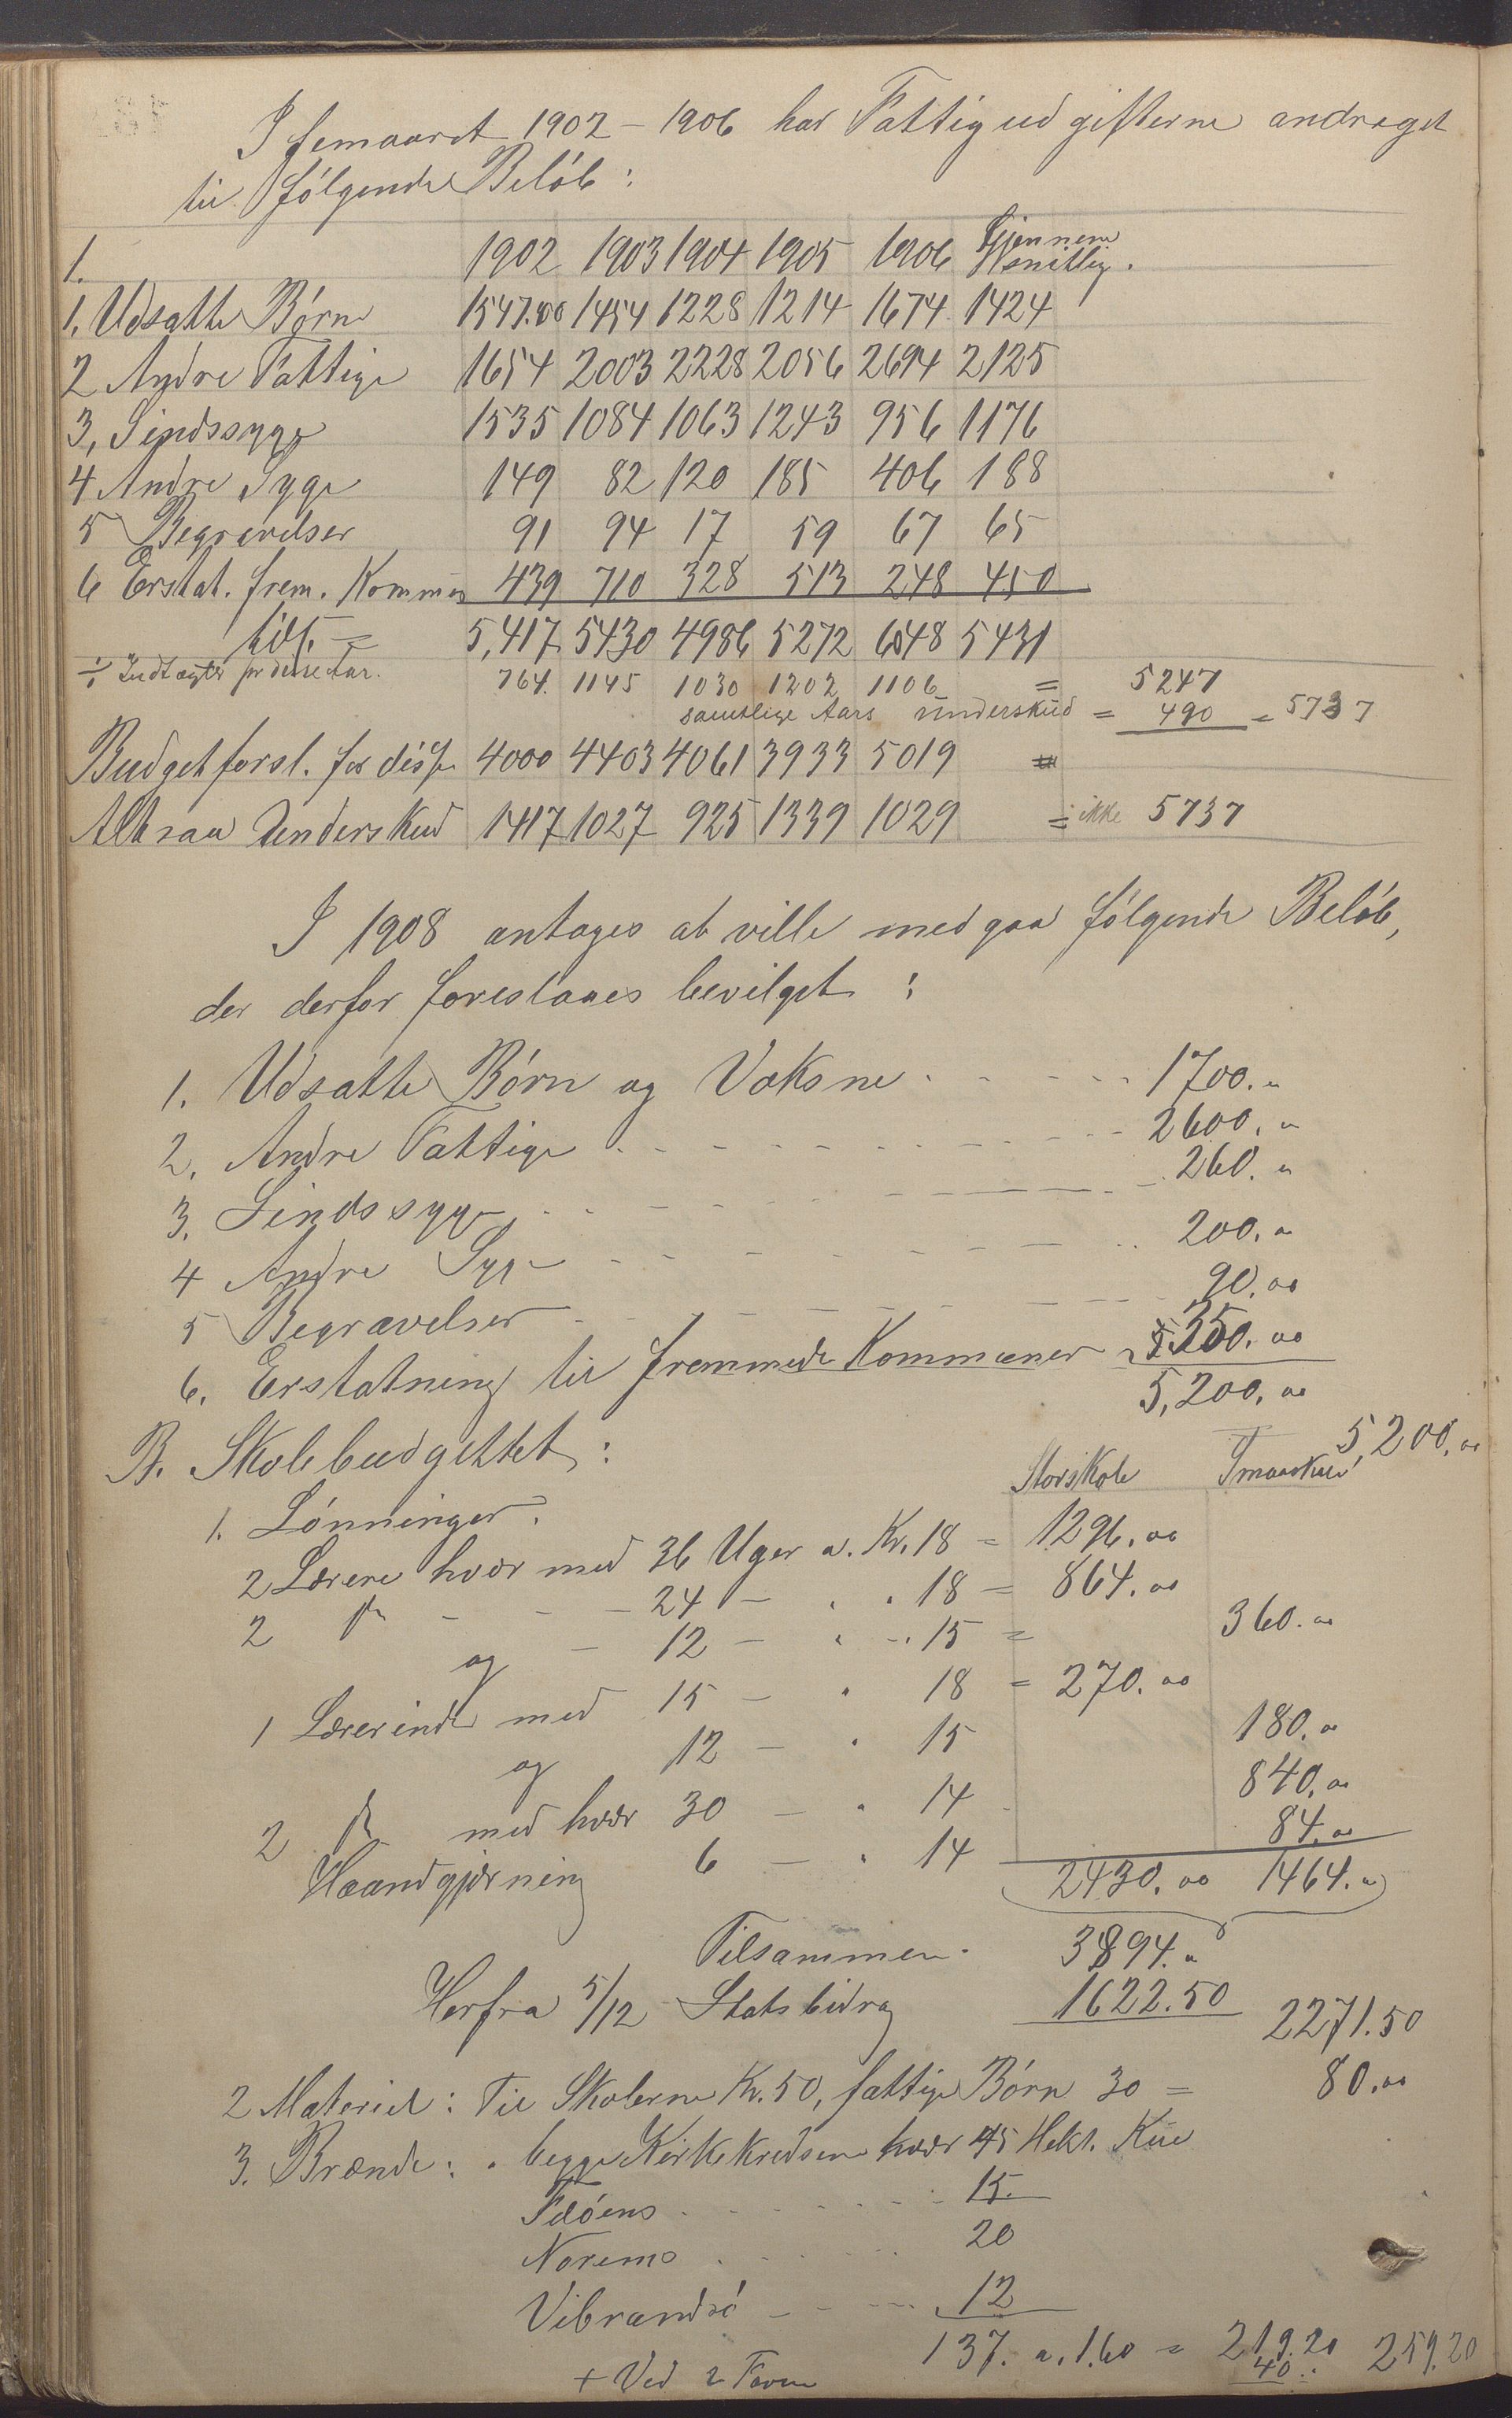 I femaaret 1902 – 1906 har Fattigudgifterne andraget
til følgende Beløb:
1. 1902 1903 1904 1905 1906 Gjennemsnitlig.
1. Udsatte Børn 1547.00 1454 1228 1214 1674 1424
2 Andre Fattige 1654 2003 2228 2056 2694 2125
3, Sindssyge 1535 1084 1063 1243 956 1176
4 Andre Syge 149 82 120 185 406 188
5 Begravelser 91 94 17 59 67 65
6 Erstat. frem. Kommun 439 710 328 513 248 450
tils. = 5,417 5430 4986 5272 6048 5431
÷ Indtægter pr disse Aar. 764. 1145 1030 1202 1106 = 5247
samtlige Aars Underskud = 490 = 5737
Budgetforsl. for disse 4000 4403 4061 3933 5019 =
Altsaa Underskud 1417 1027 925 1339 1029 = ikke 5737
I 1908 antages at ville medgaa følgende Beløb,
der derfor foreslaaes bevilget:
1. Udsatte Børn og Voksne 1700.„
2. Andre Fattige 2600.„
3. Sindssyge 260.„
4 Andre Syge 200.„
5 Begravelser 90.00
6. Erstatning til fremmede Kommuner 350.00
5,200.00
5,200.00
B. Skolebudgettet: Storskole Smaaskole
1. Lønninger.
2 Lærere hver med 36 Uger a. Kr. 18 = 1296.00
2 do – – – 24 – „ „ 18 = 864.00
og – 12 – „ „ 15 = 360.00
1 Lærerinde med 15 – „ 18 = 270.00
og 12 – „ 15 180.00
2 do med hver 30 – „ 14 840.00
Haandgjerning 6 – „ 14 84.00
2430.00 1464.„
Tilsammen 3894.„
Herfra 5/12 Statsbidrag 1622.50 2271.50
2 Materiel: Til Skolerne Kr. 50, fattige Børn 30 = 80.00
3. Brænde: „ begge Kirkekredsene hver 45 Hekt. Kul
Fløens 15.
Norems 20
Vibrandsø 12
137. a. 1.60 = 219.20 259.20
+ Ved 2 Favne 40.„